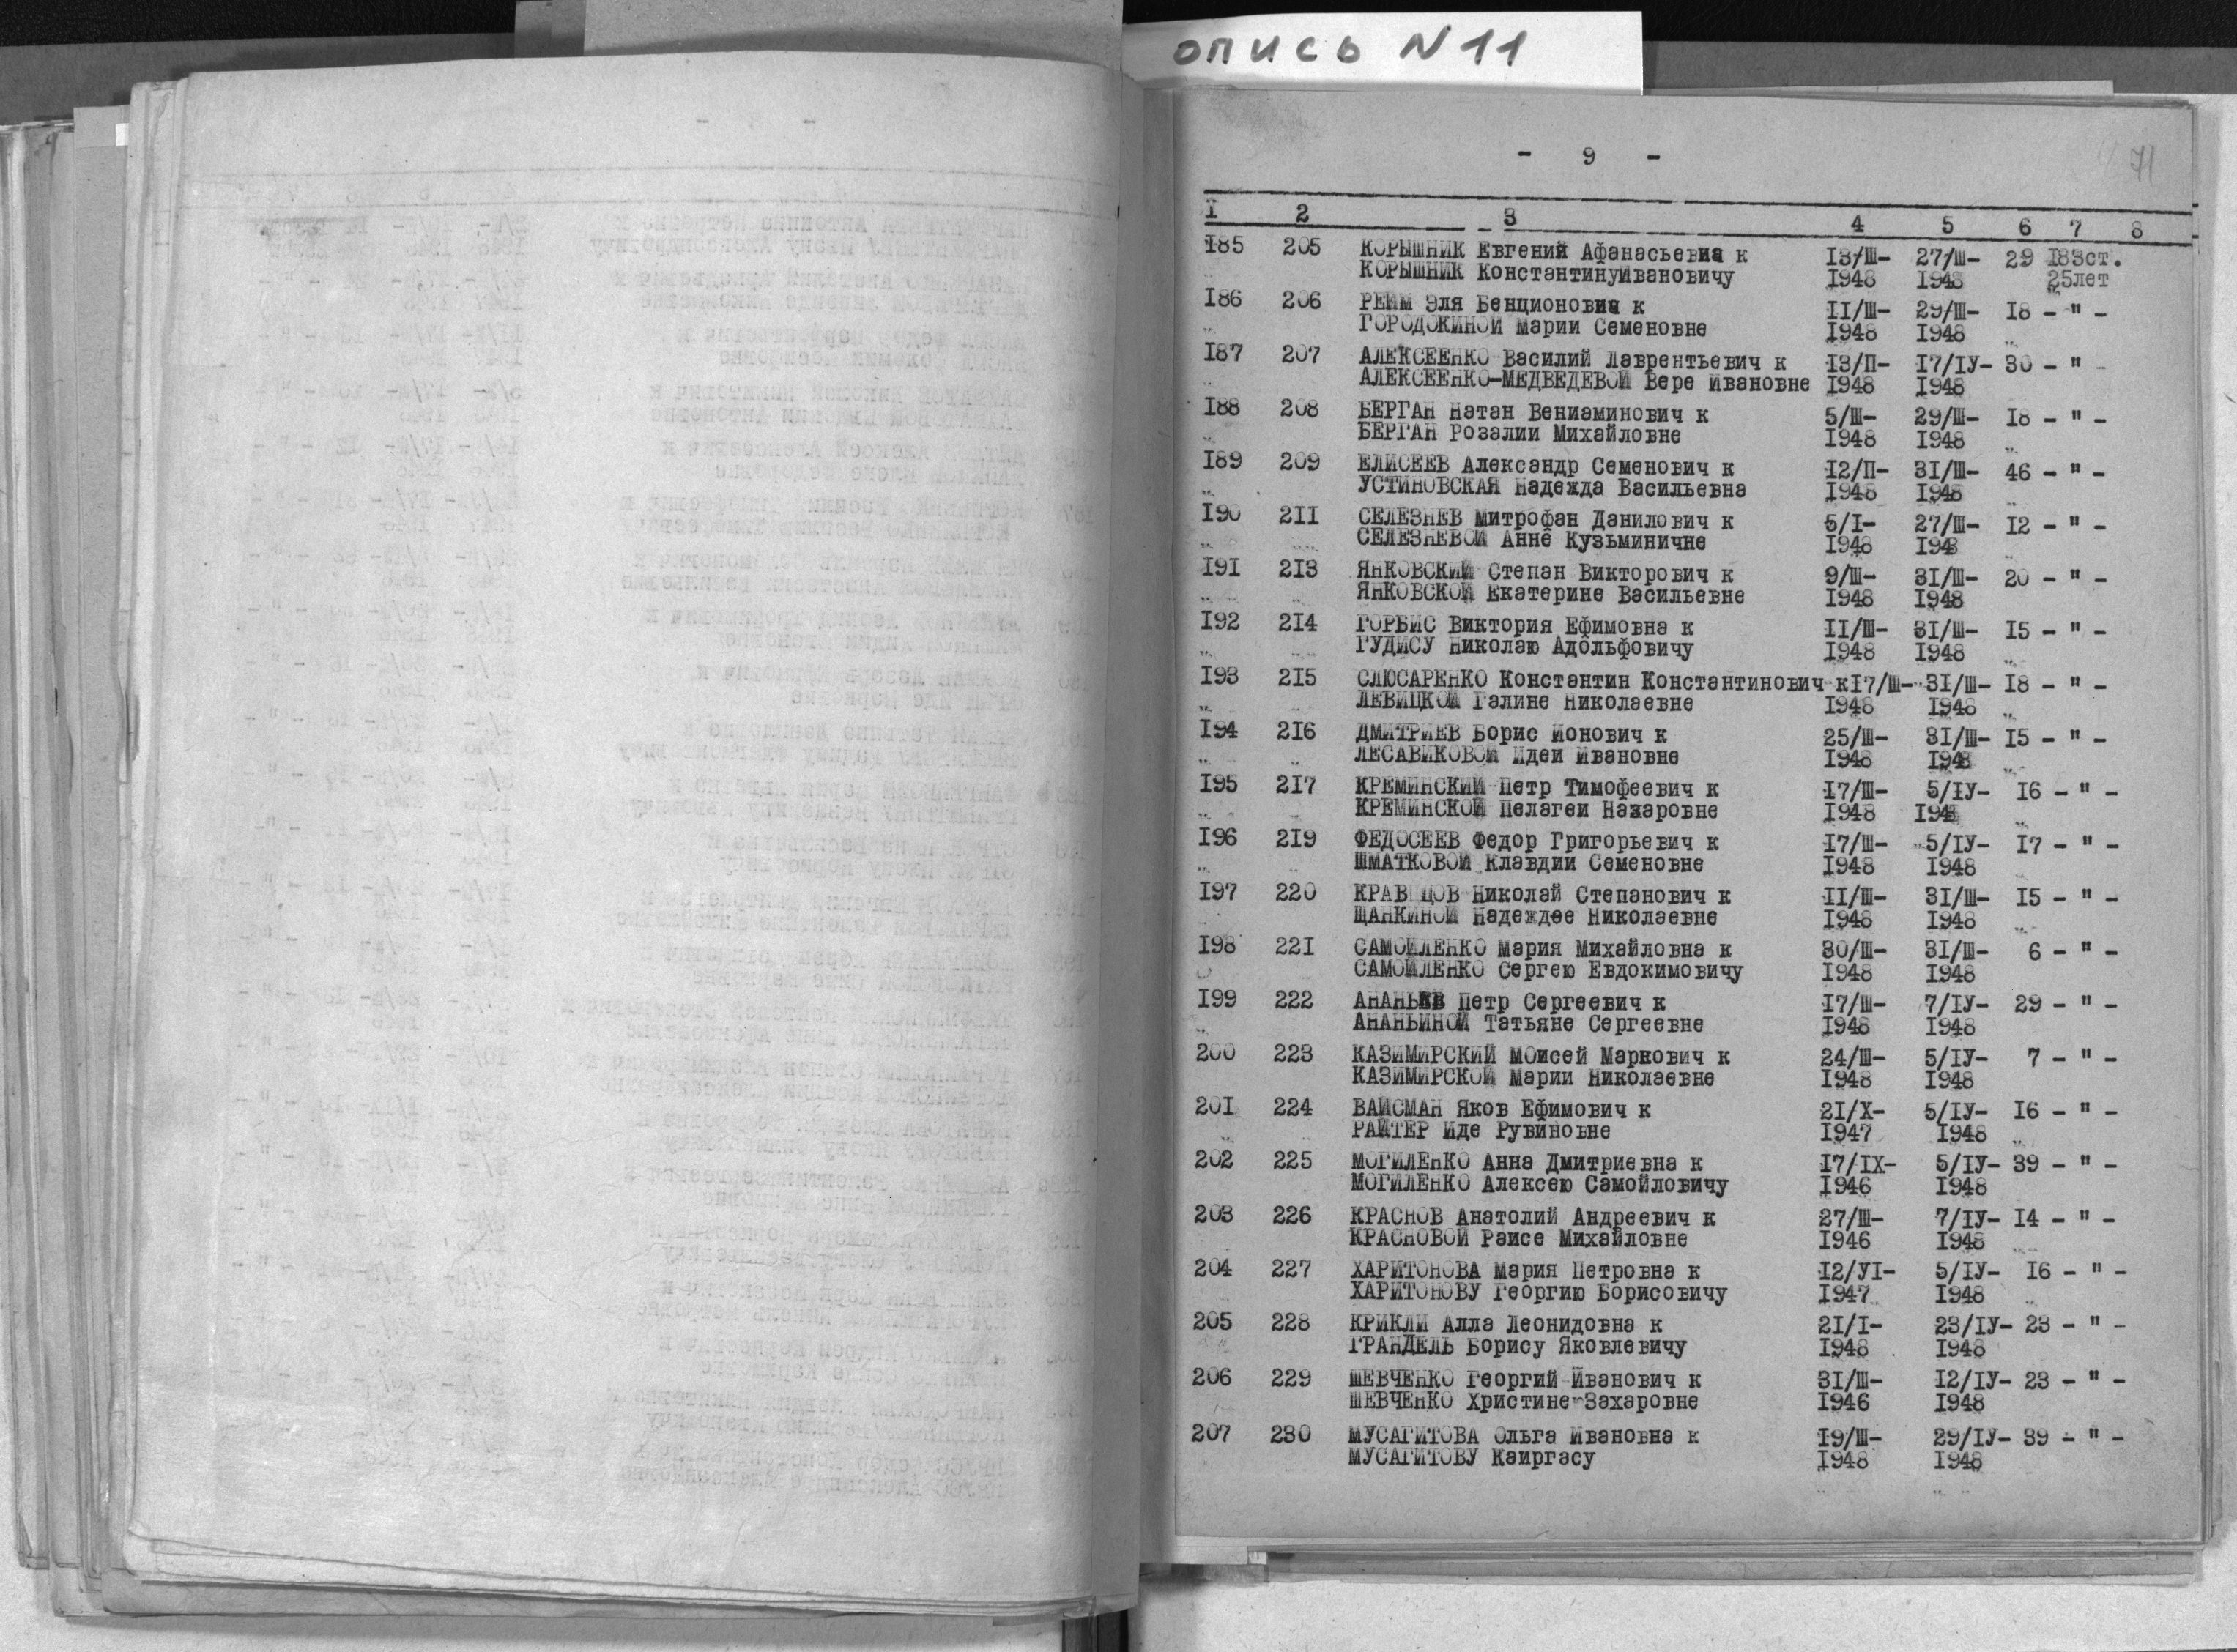 опись N 11
- 9 -
71
I 2 3 4 5 6 7 8
I85 205 КОРЫШНИК Евгений Афанасьевна к I3/Ш- 27/Ш- 29 I83ст.
КОРЫШНИК КонстантинуИвановичу I948 I948 25лет
I86 206 РЕЙМ Эля Бенционовна к II/Ш- 29/Ш- I8 - " -
ГОРОДОКИНОЙ Марии Семеновне I948 I948
I87 207 АЛЕКСЕЕНКО Василий Лаврентьевич к I3/П- I7/IУ- 30 - " -
АЛЕКСЕЕНКО-МЕДВЕДЕВОЙ Вере Ивановне I948 I948
I88 208 БЕРГАН Натан Вениаминович к 5/Ш- 29/Ш- I8 - " -
БЕРГАН Розалии Михайловне I948 I948
I89 209 ЕЛИСЕЕВ Александр Семенович к I2/П- 3I/Ш- 46 - " -
УСТИНОВСКАЯ Надежда Васильевна I948 I948
I90 2II СЕЛЕЗНЕВ Митрофан Данилович к 5/I- 27/Ш- I2 - " -
СЕЛЕЗНЕВОЙ Анне Кузьминичне I948 I948
I9I 2I3 ЯНКОВСКИЙ Степан Викторович к 9/Ш- 3I/Ш- 20 - " -
ЯНКОВСКОЙ Екатерине Васильевне I948 I948
I92 2I4 ГОРБИС Виктория Ефимовна к II/Ш- 3I/Ш- I5 - " -
ГУДИСУ Николаю Адольфовичу I948 I948
I93 2I5 СЛЮСАРЕНКО Константин Константинович кI7/Ш- 3I/Ш- I8 - " -
ЛЕВИЦКОЙ Галине Николаевне I948 I948
I94 2I6 ДМИТРИЕВ Борис Ионович к 25/Ш- 3I/Ш- I5 - " -
ЛЕСАВИКОВОЙ Идеи Ивановне I948 I948
I95 2I7 КРЕМИНСКИЙ Петр Тимофеевич к I7/Ш- 5/IУ- I6 - " -
КРЕМИНСКОЙ Пелагеи Назаровне I948 I948
I96 2I9 ФЕДОСЕЕВ Федор Григорьевич к I7/Ш- 5/IУ- I7 - " -
ШМАТКОВОЙ Клавдии Семеновне I948 I948
I97 220 КРАВЦОВ Николай Степанович к II/Ш- 3I/Ш- I5 - " -
ЩАНКИНОЙ Надеждее Николаевне I948 I948
I98 22I САМОЙЛЕНКО Мария Михайловна к 30/Ш- 3I/Ш- 6 - " -
САМОЙЛЕНКО Сергею Евдокимовичу I948 I948
I99 222 АНАНЬЕВ Петр Сергеевич к I7/Ш- 7/IУ- 29 - " -
АНАНЬИНОЙ Татьяне Сергеевне I948 I948
200 223 КАЗИМИРСКИЙ Моисей Маркович к 24/Ш- 5/IУ- 7 - " -
КАЗИМИРСКОЙ Марии Николаевне I948 I948
20I 224 ВАЙСМАН Яков Ефимович к 2I/Х- 5/IУ- I6 - " -
РАЙТЕР Иде Рувиновне I947 I948
202 225 МОГИЛЕНКО Анна Дмитриевна к I7/IХ- 5/IУ- 39 - " -
МОГИЛЕНКО Алексею Самойловичу I946 I948
203 226 КРАСНОВ Анатолий Андреевич к 27/Ш- 7/IУ- I4 - " -
КРАСНОВОЙ Раисе Михайловне I946 I948
204 227 ХАРИТОНОВА Мария Петровна к I2/УI- 5/IУ- I6 - " -
ХАРИТОНОВУ Георгию Борисовичу I947 I948
205 228 КРИКЛИ Алла Леонидовна к 2I/I- 23/IУ- 23 - " -
ГРАНДЕЛЬ Борису Яковлевичу I948 I948
206 229 ШЕВЧЕНКО Георгий Иванович к 3I/Ш- I2/IУ- 23 - " -
ШЕВЧЕНКО Христине Захаровне I946 I948
207 230 МУСАГИТОВА Ольга Ивановна к I9/Ш- 29/IУ- 39 - " -
МУСАГИТОВУ Каиргасу I948 I948